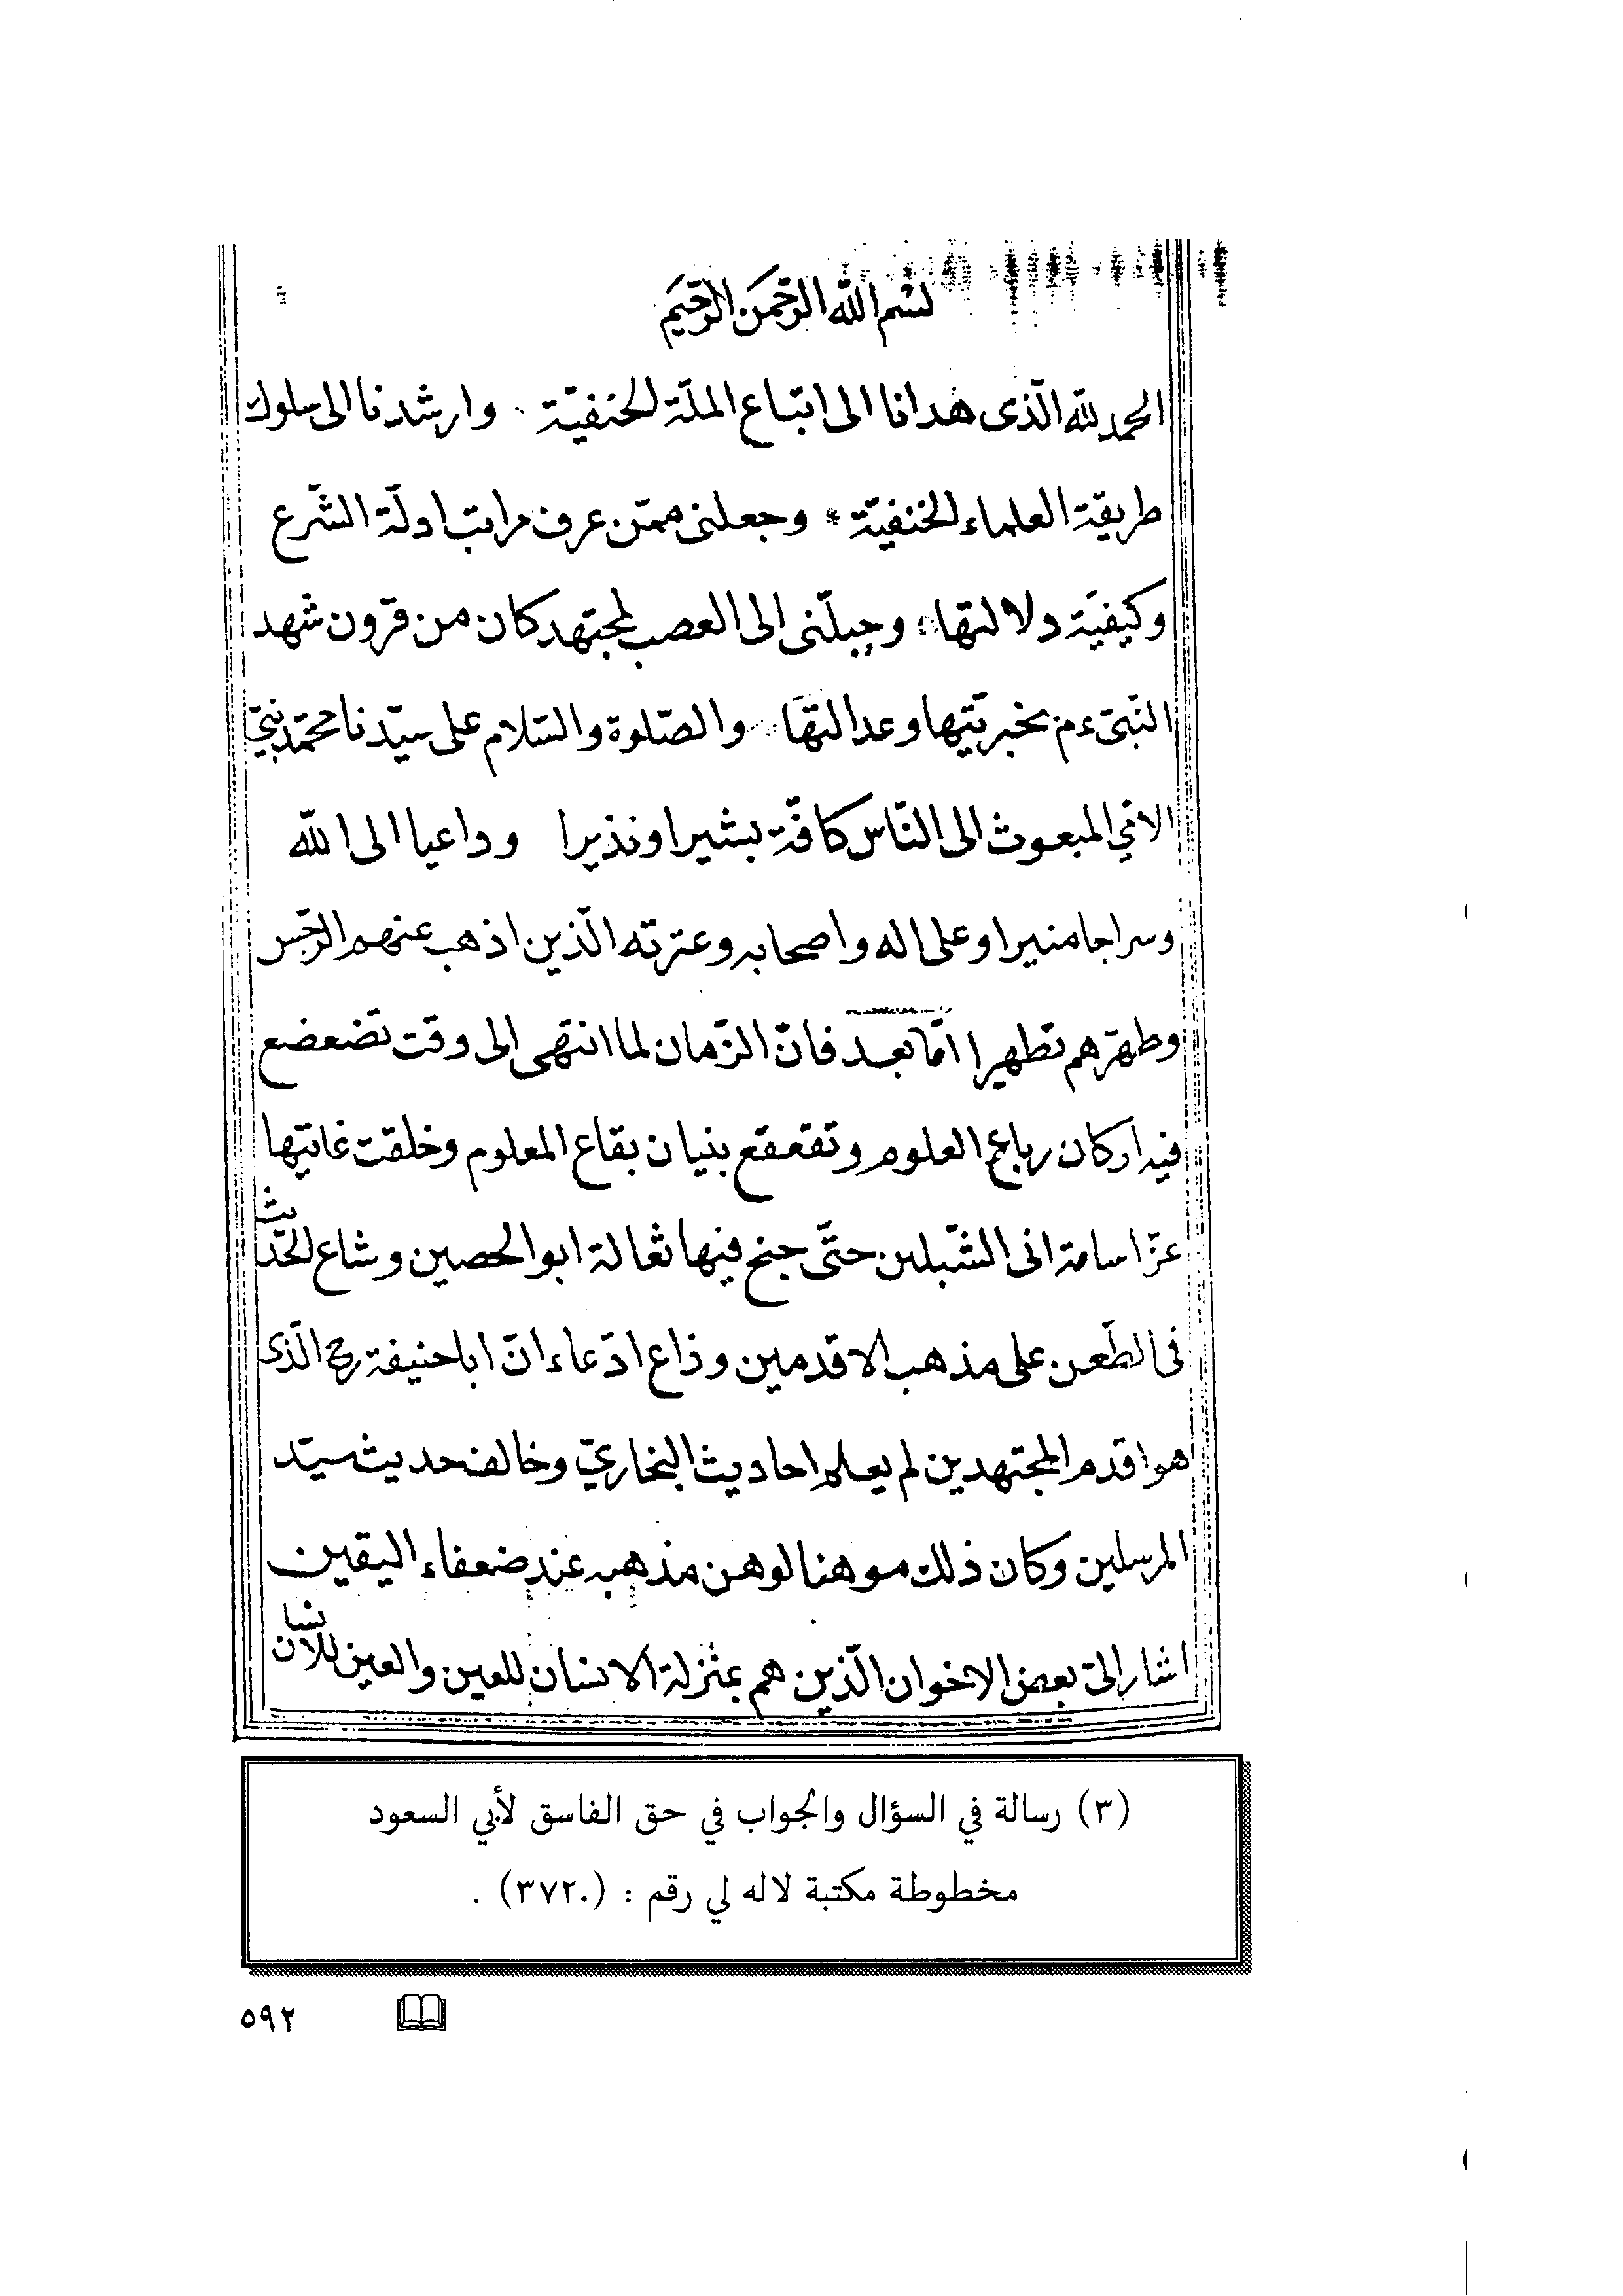 بسم الله الرّحمن الرّحيم
الحمد لله الّذى هدانا الى اتباع الملّة الحنفيّة وارشدنا الى سلوك
طريقة العلماء الحنفيّة * وجعلنى ممّن عرف مراتب ادلّة الشّرع
وكيفيّة دلالتها وجبلّنى الى العصب لمجتهد كان من قرون شهد
النّبىّ ءم بخيريّتها وعدالتها والصّلوة والسّلام على سيّدنا محمّد نبىّ
الامّي المبعوث الى النّاس كافّة بشيرا ونذيرا وداعيا الى الله
وسراجا منيرا وعلى اله واصحابه وعترته الّذين اذهب عنهم الرّجس
وطهّرهم تطهيرا امّا بعد فانّ الزّمان لما انتهى الى وقت تضعضع
فيه اركان رباع العلوم وتقعقع بنيان بقاع المعلوم وخلقت غابتها
عزّ اسامة ابى الشّبلين حتّى جنح فيها ثعالة ابو الحصين وشاع الحدّيث
فى الطّعن على مذهب الاقدمين وذاع ادّعاء انّ ابا حنيفة رح الّذى
هو اقدم المجتهدين لم يعلم احاديث البخاريّ وخالف حديث سيّد
المرسلين وكان ذلك موهنا لوهن مذهبه عند ضعفاء اليقين
اشار الىّ بعض الاخوان الّذين هم بمنزلة الانسان للعين والعين للانسان
(٣) رسالة في السؤال والجواب في حق الفاسق لأبي السعود
مخطوطة مكتبة لاله لي رقم : (٣٧٢٠) .
٥٩٢